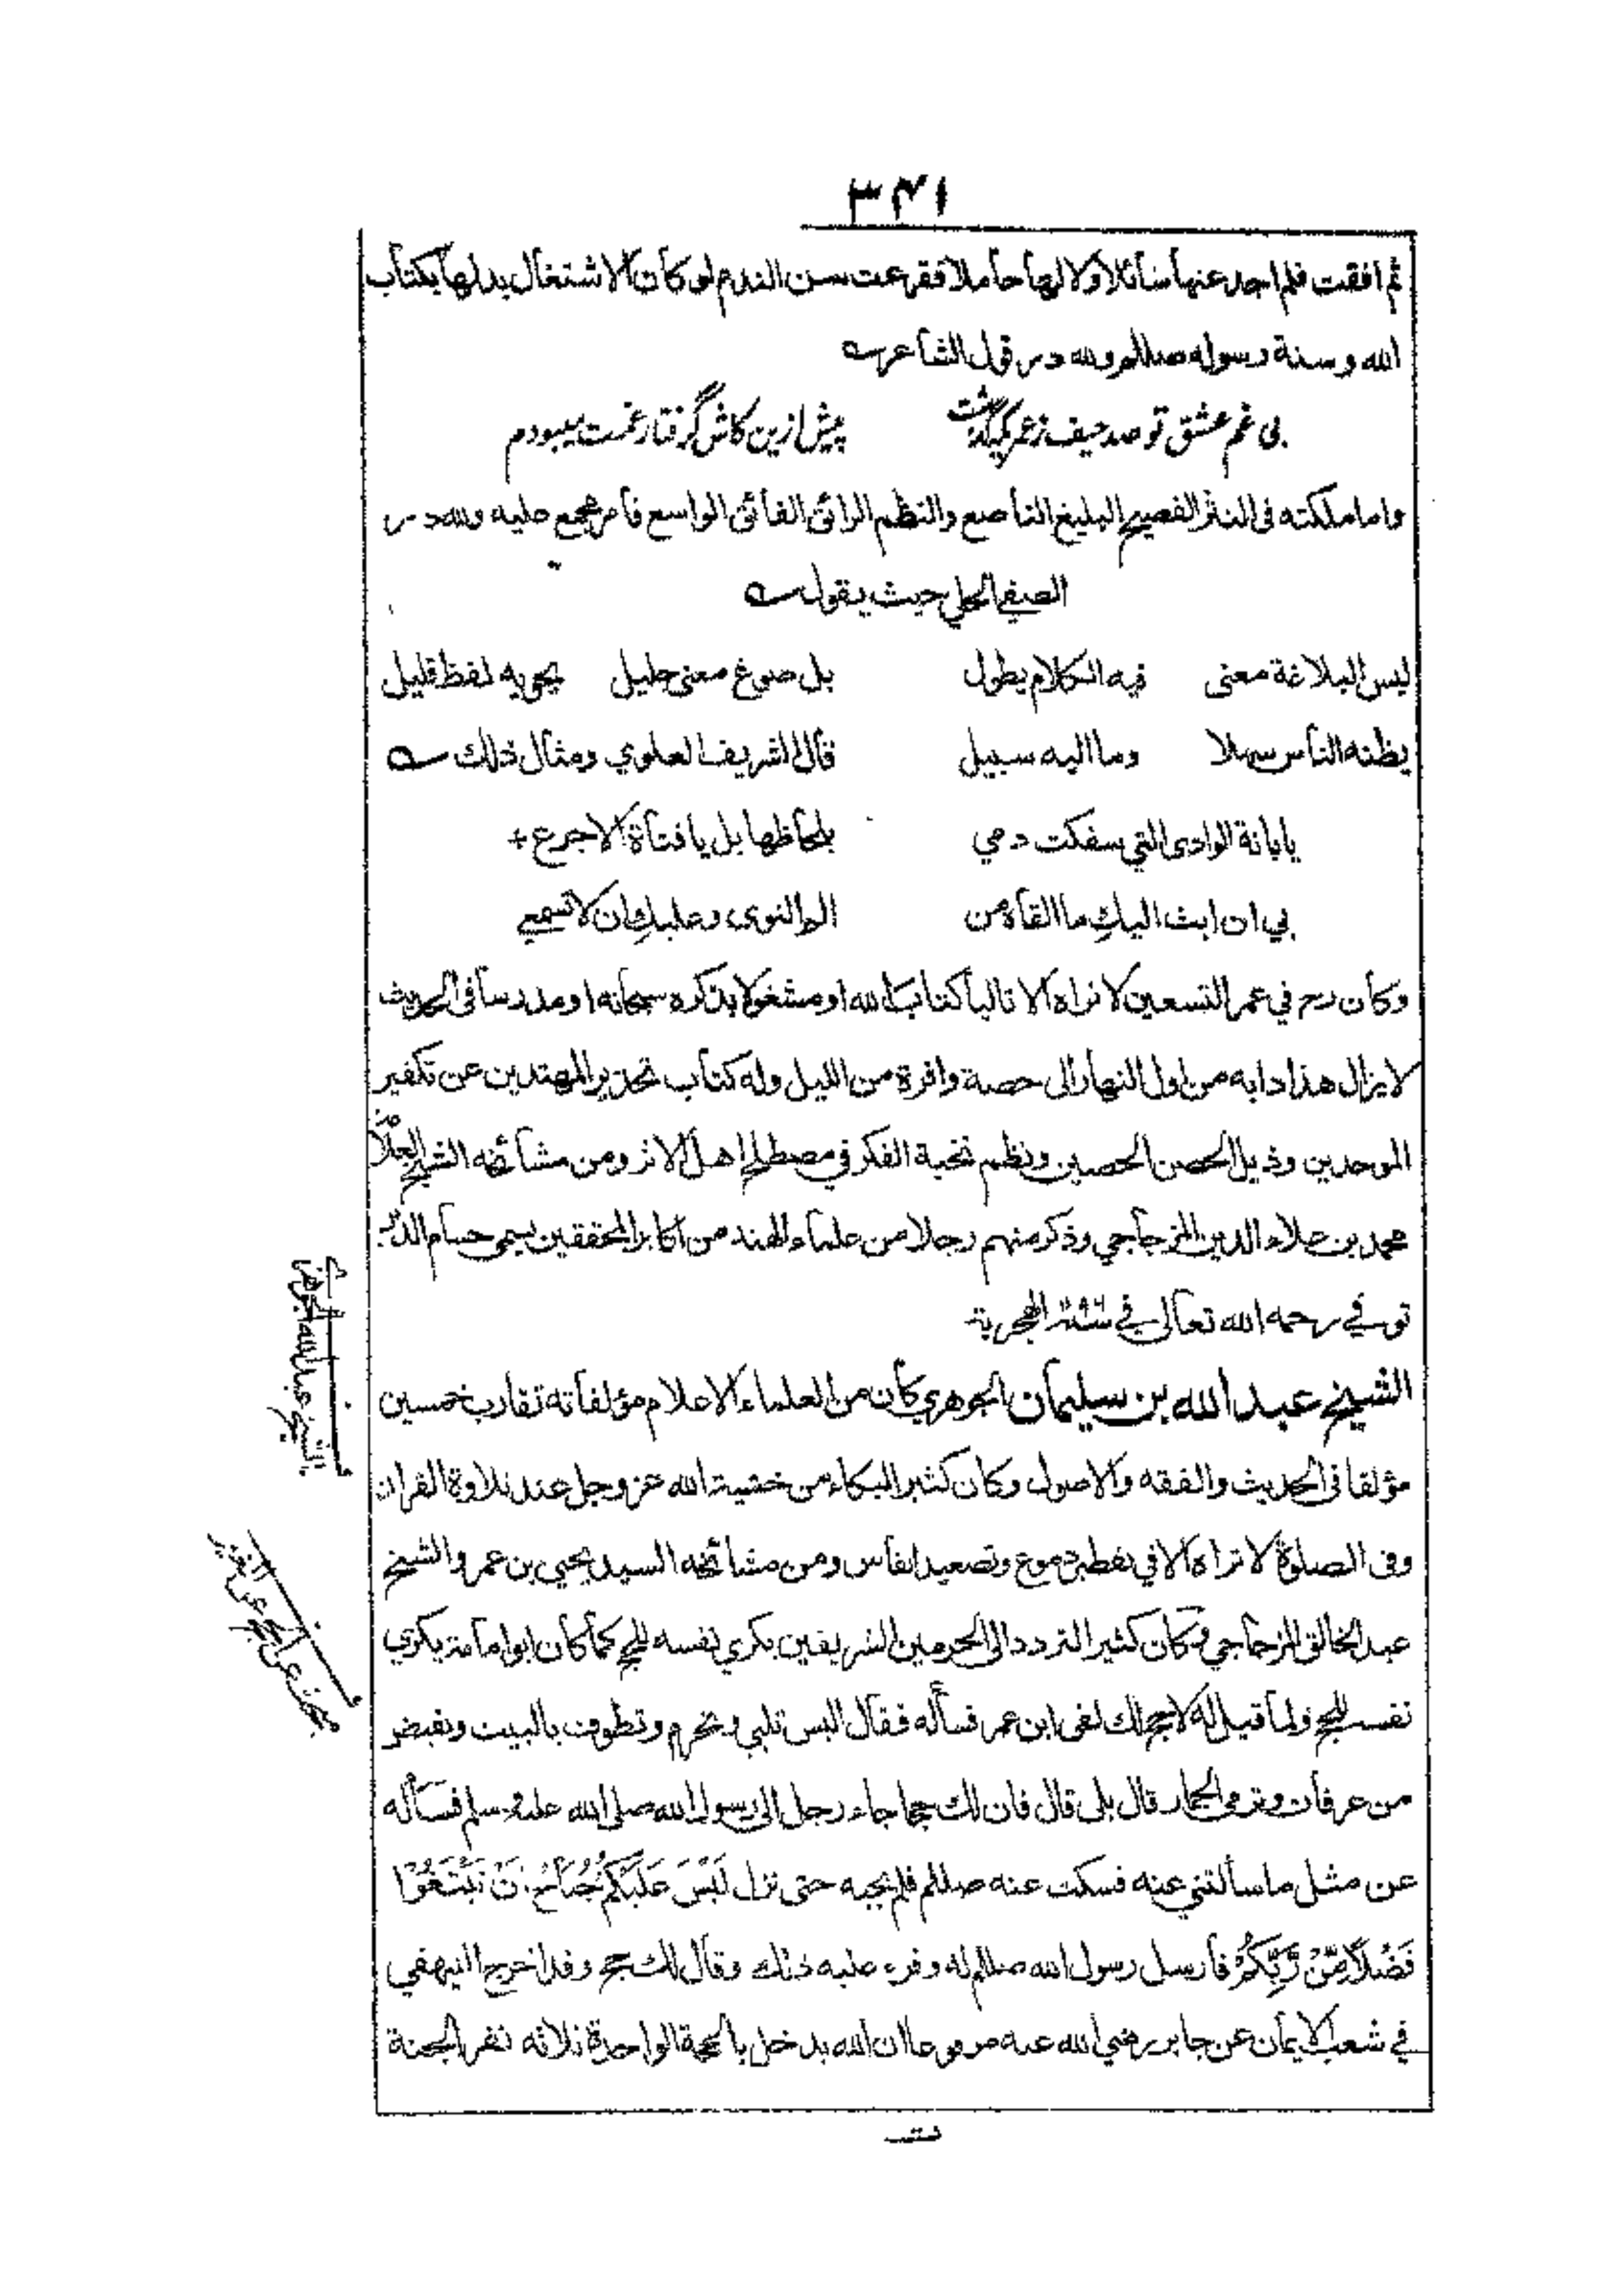 ٣٤١
ثم افقت فلم اجد عنها سائلا ولا لها حاملا فقرعت سن الندم لو كان الاشتغال بدلها بكتاب
الله وسنة رسوله صللم ولله در قول الشاعر
بی غم عشق تو صد حیف ز عمر یکه گذشت پیش ازین کاش گرفتار غمت میبودم
واما ملكته فى النثر الفصيح البليغ الناصع والنظم الرائق الفائق الواسع فأمر مجمع عليه ولله در
الصفي الحلي حيث يقول
ليس البلاغة معنى فيه الكلام يطول بل صوغ معنى جليل يحويه لفظ قليل
يظنه الناس سهلا وما اليه سبيل قال الشريف العلوي ومثال ذلك
يا بانة الوادى التي سفكت دمي بلحاظها بل يا فتاة الاجرع +
بي ان ابث اليكِ ما القاه من الم النوى وعليكِ ان لا تسمعي
وكان رح في عمر التسعين لا نراه الا تاليا كتاب الله او مشغولا بذكره سبحانه او مدرسا فى الحديث
لا يزال هذا دابه من اول النهار الى حصة وافرة من الليل وله كتاب تحذير المهتدين عن تكفير
الموحدين وذيل الحصن الحصين ونظم نخبة الفكر في مصطلح اهل الاثر ومن مشائخه الشيخ العلّا
محمد بن علاء الدين المزجاجي وذكر منهم رجلا من علماء الهند من اكابر المحققين يسمى حسام الدين
توفي رحمه الله تعالى في الهجرية
الشيخ عبد الله بن سليمان الجوهري كان من العلماء الاعلام مؤلفاته تقارب خمسين
مؤلفا فى الحديث والفقه والاصول وكان كثير البكاء من خشية الله عز وجل عند تلاوة القران
وفى الصلوة لا تراه الا في تقطير دموع وتصعيد انفاس ومن مشائخه السيد يحيى بن عمر والشيخ
عبد الخالق المزجاجي وكان كثير التردد الى الحرمين الشريفين يكري نفسه للحج كما كان ابو امامة يكري
نفسه للحج ولما قيل له لا حج لك لقى ابن عمر فسأله فقال اليس تلبي وتحرم وتطوف بالبيت وتفيض
من عرفات وترمى الجمار قال بلى قال فان لك حجا جاء رجل الى رسول الله صلى الله عليه وسلم فسأله
عن مثل ما سألتني عنه فسكت عنه صللم فلم يجبه حتى نزل لَيْسَ عَلَيْكُمْ جُنَاحٌ اَنْ تَبْتَغُوْا
فَضْلًا مِّنْ رَّبِّكُمْ فأرسل رسول الله صللم له وقرء عليه ذلك وقال لك حج وقد اخرج البيهقي
في شعب الايمان عن جابر رضي الله عنه مرفوعا ان الله يدخل بالحجة الواحدة ثلاثة نفر الجنة
الشيخ عبد الله الجوهري
مبحث عن الحج عن الغير